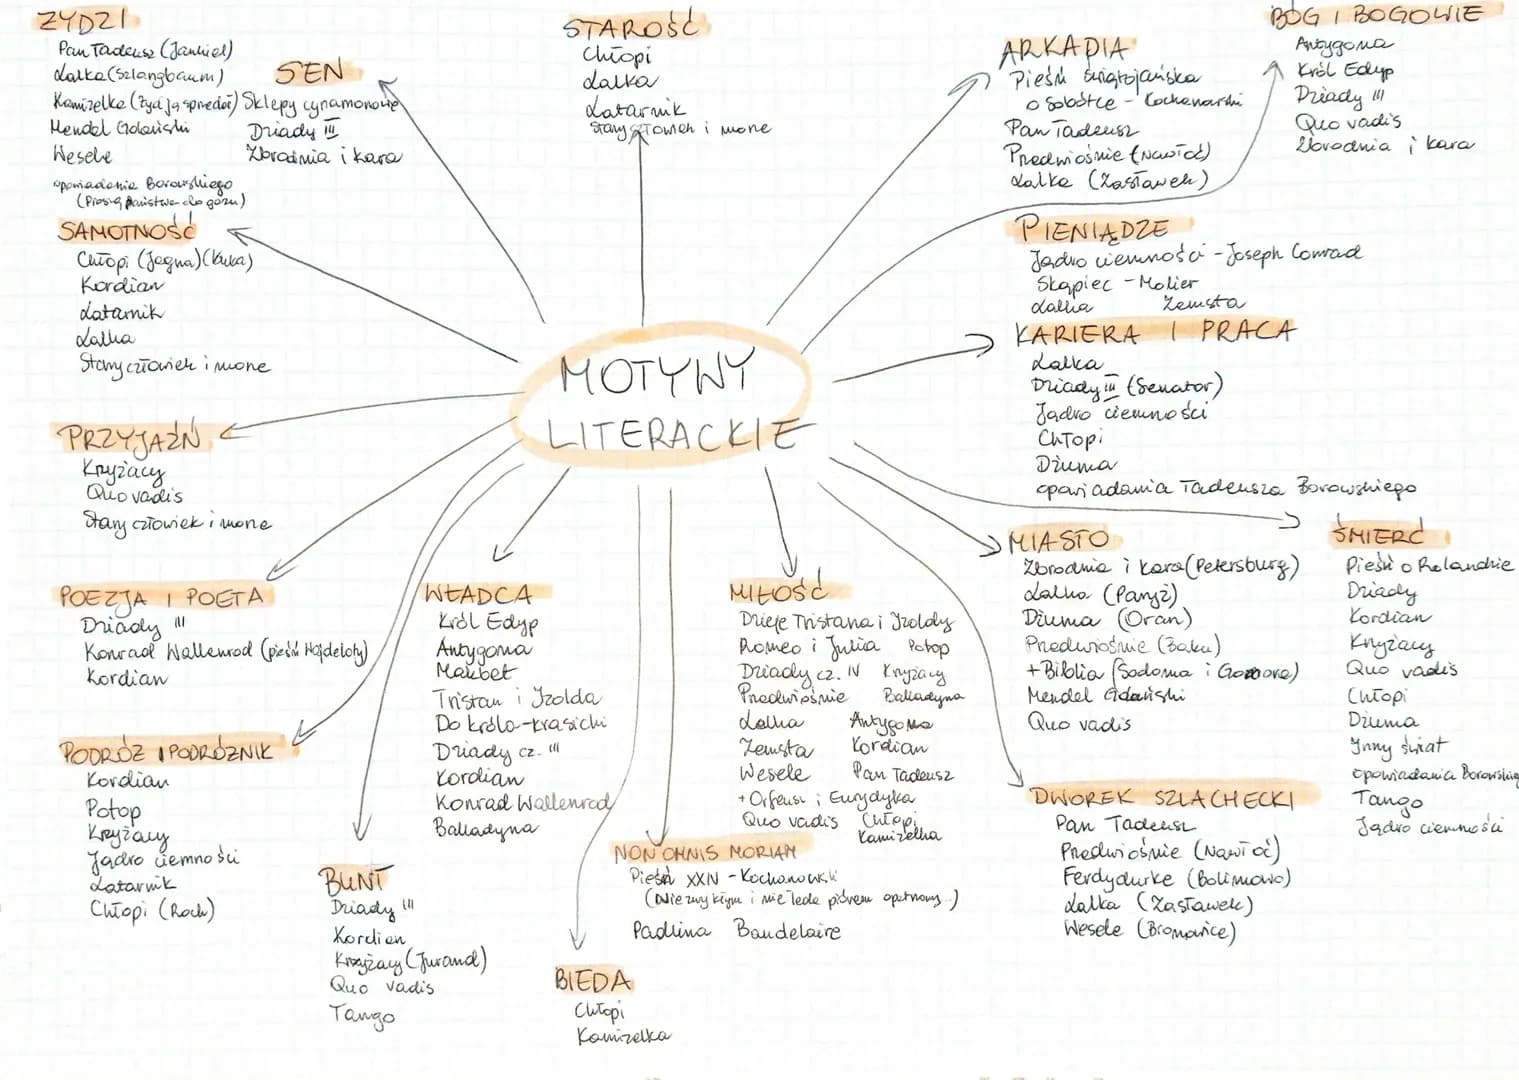 MOTYWY
LITERACKIE
ŻYDZI
Pan Tadeusz (Jankiel)
Lalka (Szlangbaum)
Kamizelka (Żyd ją sprzedał)
Mendel Gdański
Wesele
opowiadania Borowskiego
(Proszę państwa do gazu)
SEN
Sklepy cynamonowe
Dziady III
Zbrodnia i kara
STAROŚĆ
Chłopi
Lalka
Latarnik
Stary człowiek i morze
ARKADIA
Pieśń świętojańska
o sobótce - Kochanowski
Pan Tadeusz
Przedwiośnie (Nawłoć)
Lalka (Zasławek)
BÓG I BOGOWIE
Antygona
Król Edyp
Dziady III
Quo vadis
Zbrodnia i kara
SAMOTNOŚĆ
Chłopi (Jagna) (Kuba)
Kordian
Latarnik
Lalka
Stary człowiek i morze
PIENIĄDZE
Jądro ciemności - Joseph Conrad
Skąpiec - Molier
Lalka Zemsta
KARIERA I PRACA
Lalka
Dziady III (Senator)
Jądro ciemności
Chłopi
Dżuma
opowiadania Tadeusza Borowskiego
PRZYJAŹŃ
Krzyżacy
Quo vadis
Stary człowiek i morze
POEZJA I POETA
Dziady III
Konrad Wallenrod (pieśń Wajdeloty)
Kordian
WŁADCA
Król Edyp
Antygona
Makbet
Tristan i Izolda
Do króla - Krasicki
Dziady cz. III
Kordian
Konrad Wallenrod
Balladyna
MIŁOŚĆ
Dzieje Tristana i Izoldy
Romeo i Julia Potop
Dziady cz. IV Krzyżacy
Przedwiośnie Balladyna
Lalka Antygona
Zemsta Kordian
Wesele Pan Tadeusz
+ Orfeusz i Eurydyka
Quo vadis Chłopi
Kamizelka
MIASTO
Zbrodnia i kara (Petersburg)
Lalka (Paryż)
Dżuma (Oran)
Przedwiośnie (Baku)
+ Biblia (Sodoma i Gomora)
Mendel Gdański
Quo vadis
ŚMIERĆ
Pieśń o Rolandzie
Dziady
Kordian
Krzyżacy
Quo vadis
Chłopi
Dżuma
Inny świat
opowiadania
Tango
Jądro ciemności
PODRÓŻ I PODRÓŻNIK
Kordian
Potop
Krzyżacy
Jądro ciemności
Latarnik
Chłopi (Roch)
BUNT
Dziady III
Kordian
Krzyżacy (Jurand)
Quo vadis
Tango
BIEDA
Chłopi
Kamizelka
NON OMNIS MORIAR
Pieśń XXIV - Kochanowski
(Niezwykłym i nie leda piórem opatrzony...)
Padlina Baudelaire
DWOREK SZLACHECKI
Pan Tadeusz
Przedwiośnie (Nawłoć)
Ferdydurke (Bolimowo)
Lalka (Zasławek)
Wesele (Bronowice)